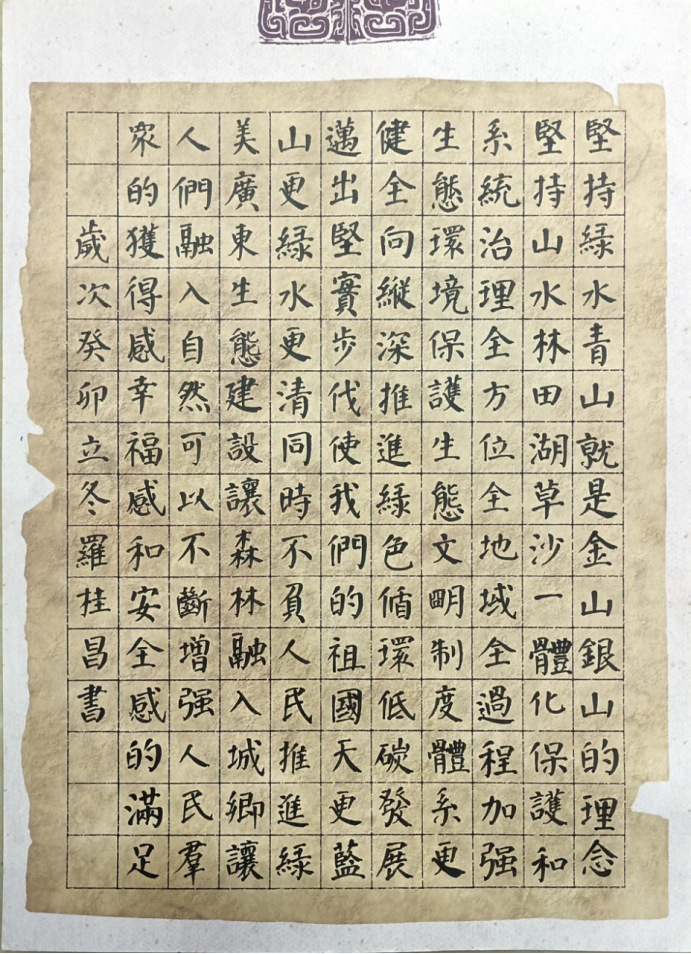 堅持緑水青山就是金山銀山的理念
堅持山水林田湖草沙一體化保護和
系統治理全方位全地域全過程加强
生態環境保護生態文明制度體系更
健全向縱深推進緑色循環低碳發展
邁出堅實步伐使我們的祖國天更藍
山更緑水更清同時不負人民推進緑
美廣東生態建設讓森林融入城鄉讓
人們融入自然可以不斷增强人民羣
衆的獲得感幸福感和安全感的滿足
歲次癸卯立冬羅桂昌書